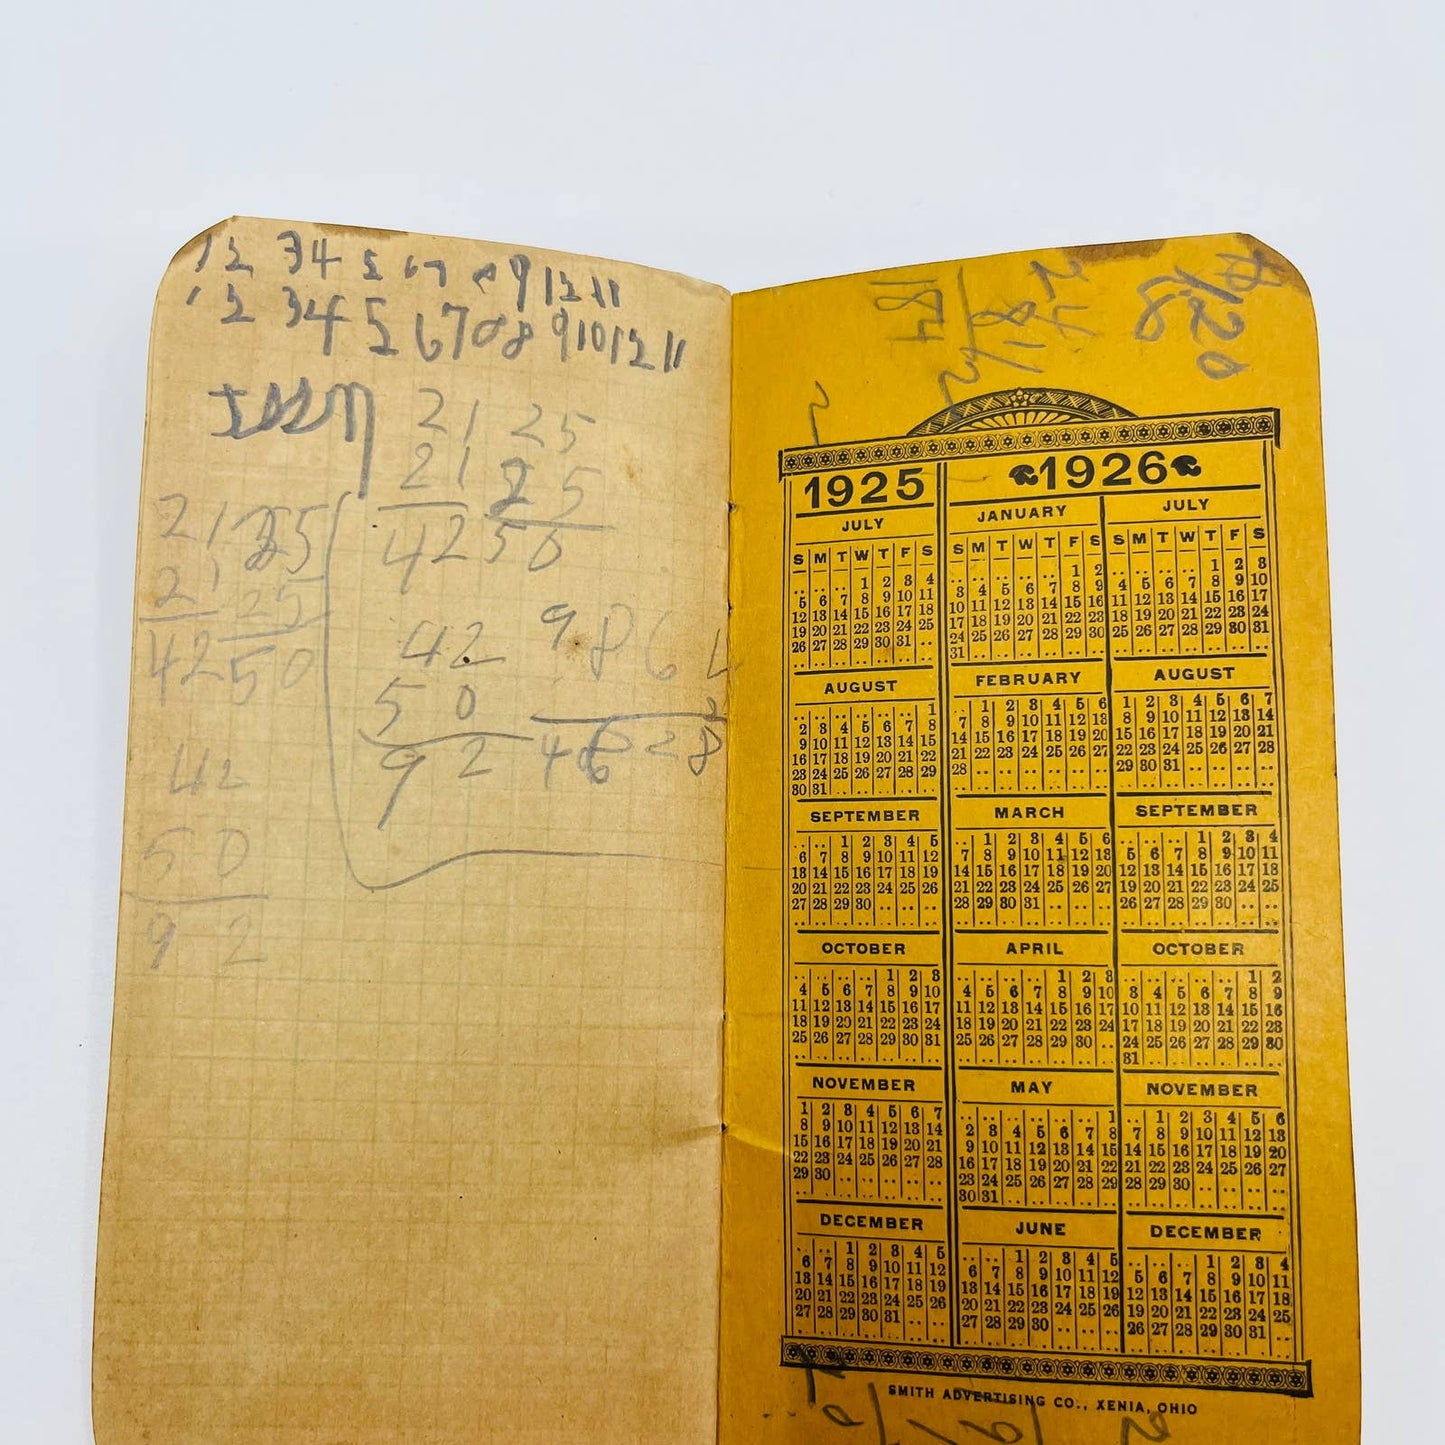 1 2 3 4 5 6 7 8 9 12 11
1 2 3 4 5 6 7 0 8 8 9 10 12 11
21 25
21 25
42 50
21 25
21 25
42 50
42
50
92
42
50
92
9 8 6
1925
JULY
S M T W T F S
.. .. .. 1 2 3 4
5 6 7 8 9 10 11
12 13 14 15 16 17 18
19 20 21 22 23 24 25
26 27 28 29 30 31 ..
AUGUST
.. .. .. .. .. .. 1
2 3 4 5 6 7 8
9 10 11 12 13 14 15
16 17 18 19 20 21 22
23 24 25 26 27 28 29
30 31 .. .. .. .. ..
SEPTEMBER
.. .. 1 2 3 4 5
6 7 8 9 10 11 12
13 14 15 16 17 18 19
20 21 22 23 24 25 26
27 28 29 30 .. .. ..
OCTOBER
.. .. .. .. 1 2 3
4 5 6 7 8 9 10
11 12 13 14 15 16 17
18 19 20 21 22 23 24
25 26 27 28 29 30 31
NOVEMBER
1 2 3 4 5 6 7
8 9 10 11 12 13 14
15 16 17 18 19 20 21
22 23 24 25 26 27 28
29 30 .. .. .. .. ..
DECEMBER
.. .. 1 2 3 4 5
6 7 8 9 10 11 12
13 14 15 16 17 18 19
20 21 22 23 24 25 26
27 28 29 30 31 .. ..
1926
JANUARY
S M T W T F S
.. .. .. .. .. 1 2
3 4 5 6 7 8 9
10 11 12 13 14 15 16
17 18 19 20 21 22 23
24 25 26 27 28 29 30
31 .. .. .. .. .. ..
FEBRUARY
.. 1 2 3 4 5 6
7 8 9 10 11 12 13
14 15 16 17 18 19 20
21 22 23 24 25 26 27
28 .. .. .. .. .. ..
MARCH
.. 1 2 3 4 5 6
7 8 9 10 11 12 13
14 15 16 17 18 19 20
21 22 23 24 25 26 27
28 29 30 31 .. .. ..
APRIL
.. .. .. .. 1 2 3
4 5 6 7 8 9 10
11 12 13 14 15 16 17
18 19 20 21 22 23 24
25 26 27 28 29 30 ..
MAY
.. .. .. .. .. .. 1
2 3 4 5 6 7 8
9 10 11 12 13 14 15
16 17 18 19 20 21 22
23 24 25 26 27 28 29
30 31 .. .. .. .. ..
JUNE
.. .. 1 2 3 4 5
6 7 8 9 10 11 12
13 14 15 16 17 18 19
20 21 22 23 24 25 26
27 28 29 30 .. .. ..
JULY
S M T W T F S
.. .. .. .. 1 2 3
4 5 6 7 8 9 10
11 12 13 14 15 16 17
18 19 20 21 22 23 24
25 26 27 28 29 30 31
AUGUST
1 2 3 4 5 6 7
8 9 10 11 12 13 14
15 16 17 18 19 20 21
22 23 24 25 26 27 28
29 30 31 .. .. .. ..
SEPTEMBER
.. .. .. 1 2 3 4
5 6 7 8 9 10 11
12 13 14 15 16 17 18
19 20 21 22 23 24 25
26 27 28 29 30 .. ..
OCTOBER
.. .. .. .. .. 1 2
3 4 5 6 7 8 9
10 11 12 13 14 15 16
17 18 19 20 21 22 23
24 25 26 27 28 29 30
31 .. .. .. .. .. ..
NOVEMBER
.. 1 2 3 4 5 6
7 8 9 10 11 12 13
14 15 16 17 18 19 20
21 22 23 24 25 26 27
28 29 30 .. .. .. ..
DECEMBER
.. .. .. 1 2 3 4
5 6 7 8 9 10 11
12 13 14 15 16 17 18
19 20 21 22 23 24 25
26 27 28 29 30 31 ..
SMITH ADVERTISING CO., XENIA, OHIO